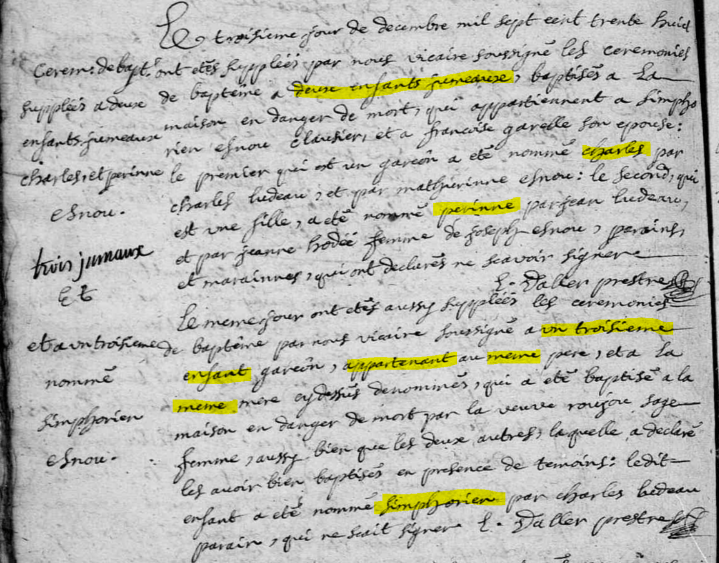 Le troisieme jour de decembre mil sept cent trente huid
ont etés supplées par nous vicaire soussigné les ceremonies
de baptême a deux enfants jumeaux, baptisés a La
maison en danger de mort, qui appartiennent a simpho
rien esnou Clausier, et a francoise garelle son epouse:
le premier qui est un garcon a eté nommé charles par
charles ludeau, et par matherinne esnou: le second, qui
est une fille, a eté nommé perinne par jean ludeau,
et par jeanne hodée femme de joseph esnou, parains,
et marainnes, qui ont declarés ne scavoir signer
L. Daller prestre
Cerem: de bapt.
supplées a deux
enfants jumeaux
charles, et perinne
esnou.
trois jumaux
Et
Le meme jour ont etés aussy supplées les ceremonies
de baptême par nous vicaire soussigné a un troisieme
enfant garcon, appartenant au meme pere, et a La
meme mere cy dessus denommés, qui a eté baptisé a la
maison en danger de mort par la veuve roujou sage
femme, aussy bien que les deux autres, laquelle a declaré
les avoir bien baptisés en presence de temoins: ledit
enfant a eté nommé simphorien par charles ludeau
parain, qui ne scait signer L. Daller prestre
et a un troisieme
nommé
simphorien
esnou.